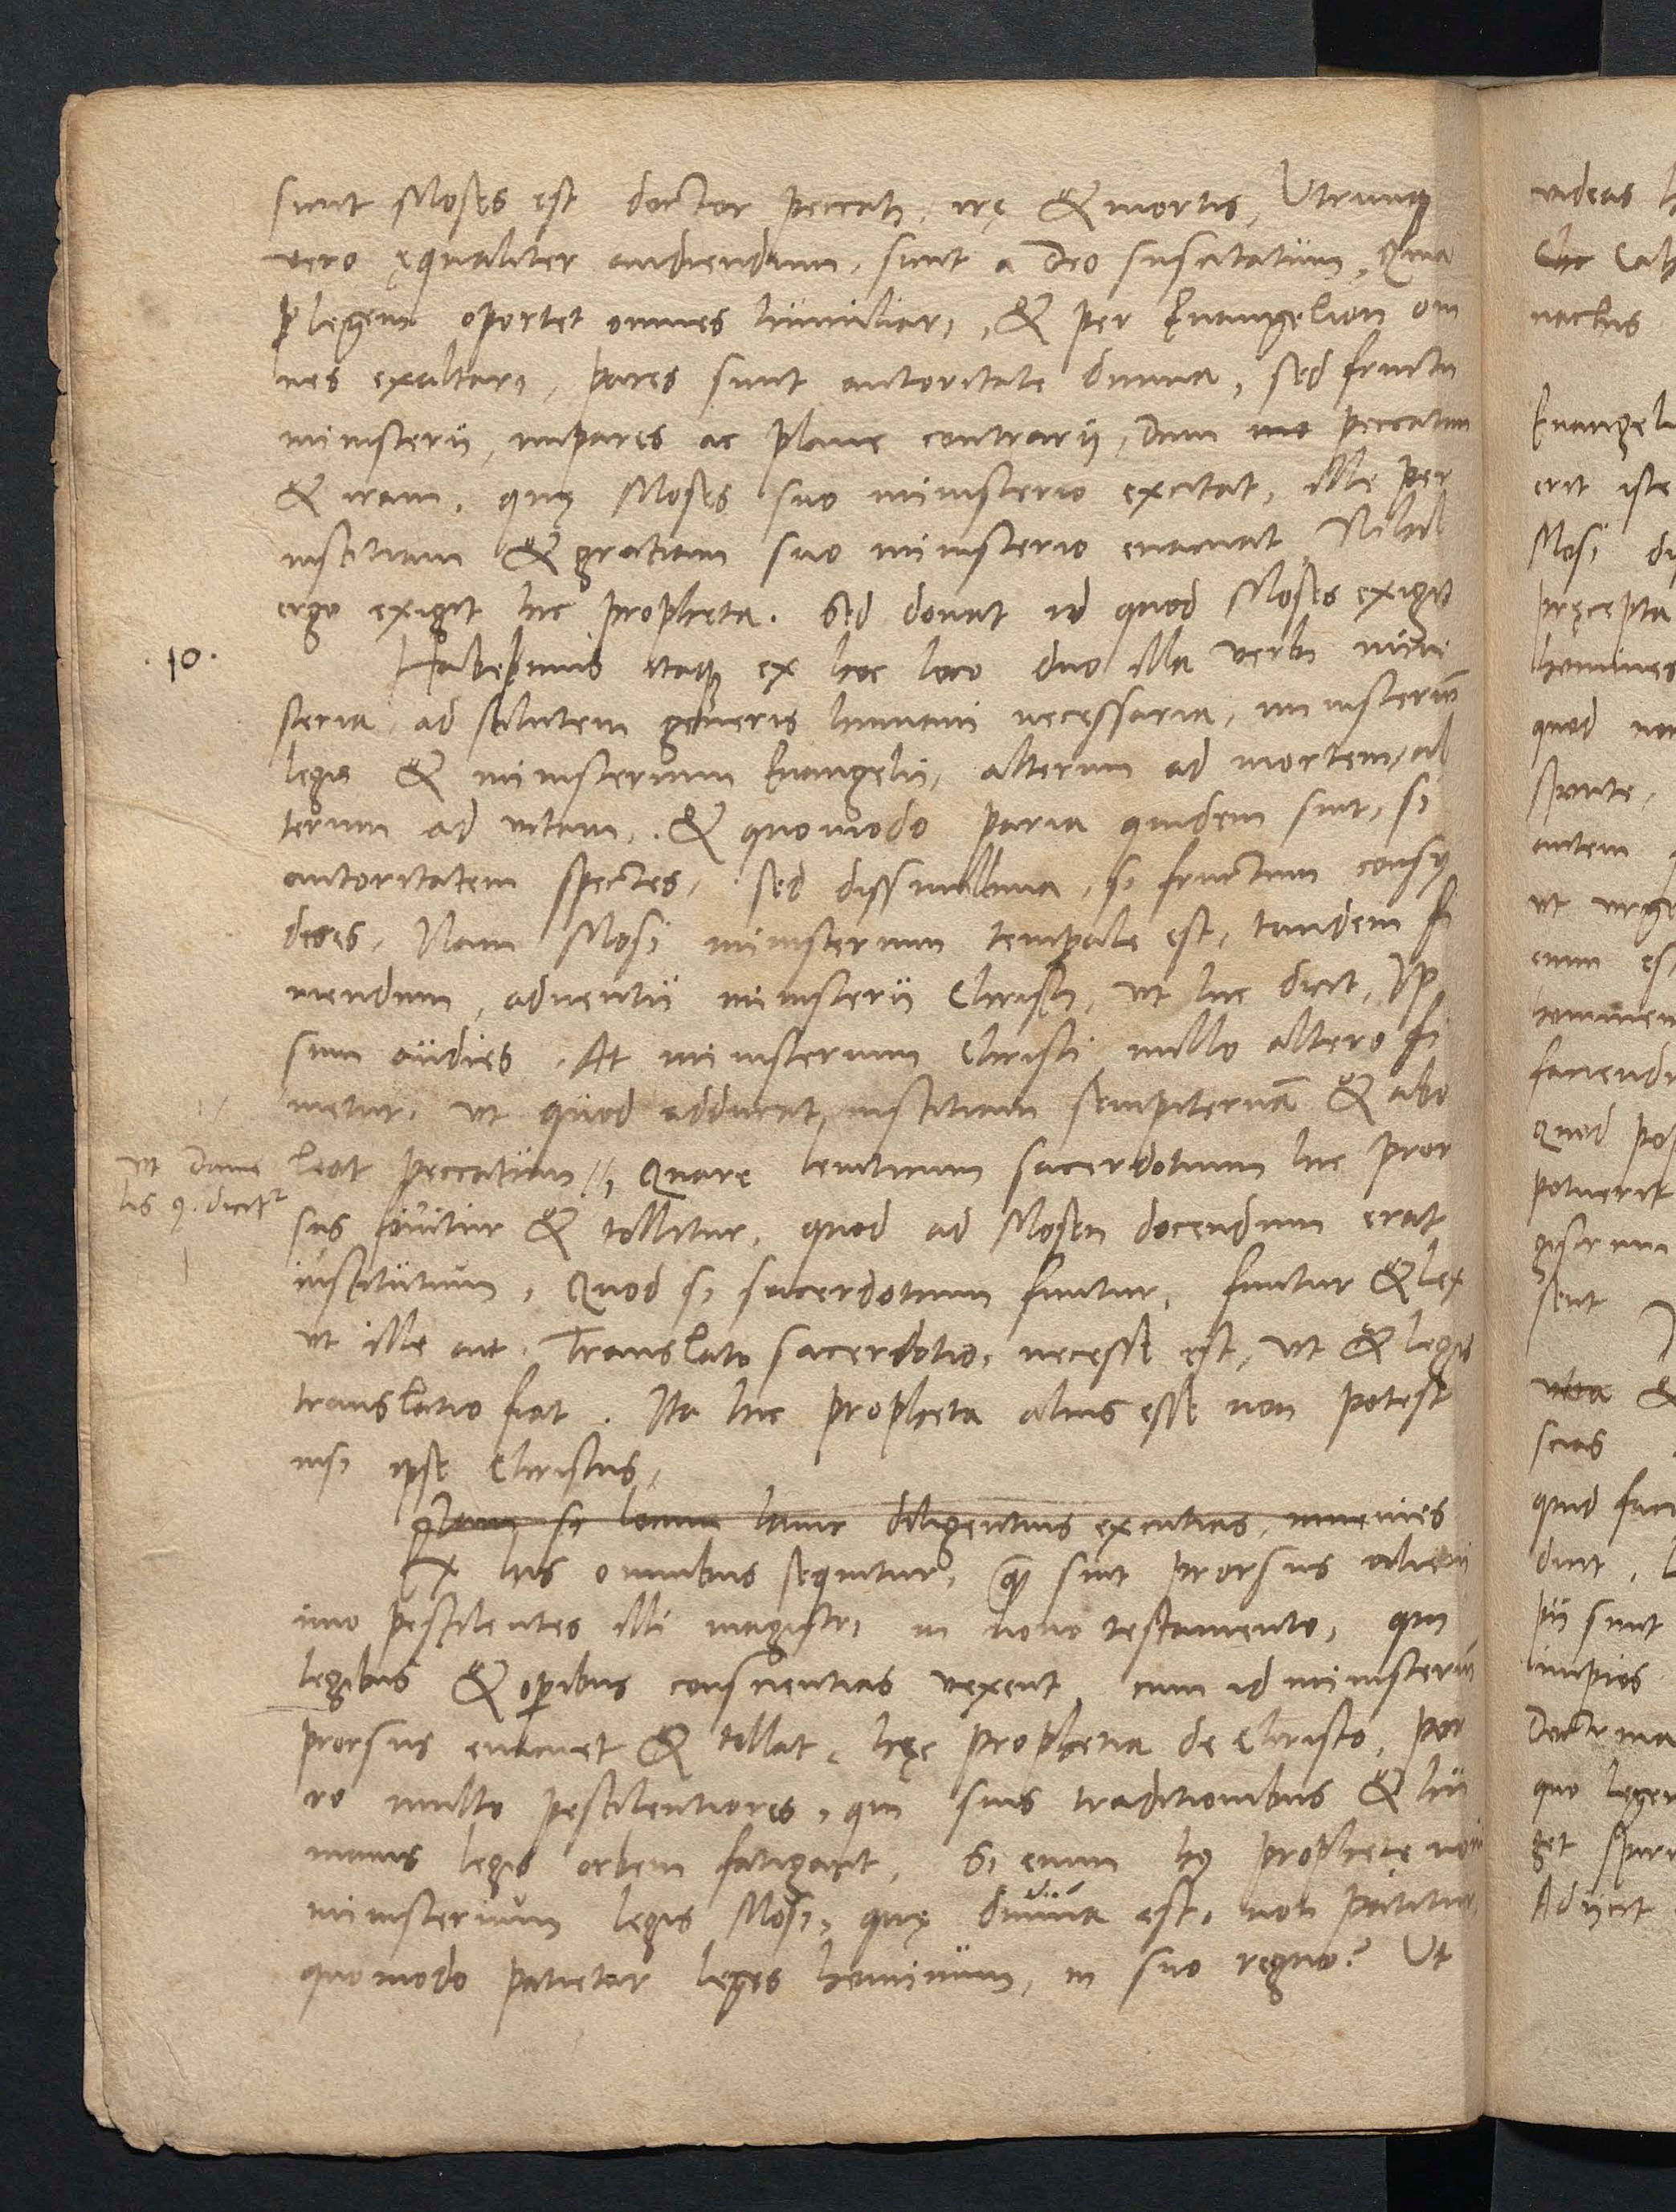 sicut Moses est doctor peccati, irę & mortis, Utrunq
vero ęqualiter audiendum, sicut a Deo suscitatum, Quia
per legem oportet omnes humiliari, & per Euangelion om
nes exaltari, pares sunt autoritate diuina, sed fructu
ministerii, impares ac plane contrarij, Dum peccatum
& iram, quę Moses suo ministerio excitat, ille per
iustitiam & gratiam suo ministerio euacuat, Nihil
ergo exigit hic propheta. Sed donat id quod Moses exigit
.10.
Habemus itaq ex hoc loco duo illa verbi mini
steria, ad salutem generis humani necessaria, ministeriū
legis & ministerium Euangelii, alterum ad mortem, al
terum ad vitam, & quomodo paria quidem sint, si
autoritatem spectes, sed dissimillima, si fructum consy
deres, Nam Mosi ministerium temporale est, tandem fi
niendum, aduentu ministerii Christi, ut hic dicit, Ip
sum audies. At ministerium Christi nullo altero fi
nietur, ut quod adducat, iustitiam sempiternā & abo
leat peccatum //, Quare leuiticum sacerdotium hic pror
ut Danie
lis 9. dicitur
sus finitur & tollitur, quod ad Mosen docendum erat
institutum, Quod si sacerdotium finitur, finitur & lex
ut ille ait, Translato sacerdotio, necesse est, ut & legis
translatio fiat. Ita hic propheta alius esse non potest
nisi ipse Christus,
si locum hunc diligentius excutias, inuenies
Ex his omnibus sequitur, quod sint prorsus alieni
imo pestilentes illi magistri in nouo testamento, qui
legibus & operibus conscientias vexent, cum id ministeriū
prorsus euacuet & tollat, hęc prophetia de Christo, por
ro multo pestilentiores, qui suis traditionibus & hu
manis legis orbem fatigant, Si enim hę prophetię
ministerium legis Mosi, quę diuina est, non patitur,
quomodo patietur leges hominum, in suo regno? Ut
videas
nactus
Euangeli
erit iste
Mosi
pręcepta
homines
quod non
autem
hominem
quod
potuerit
sent
scias
quid faci
pii sunt
impios
Doctrina
quo leger
Adijcit